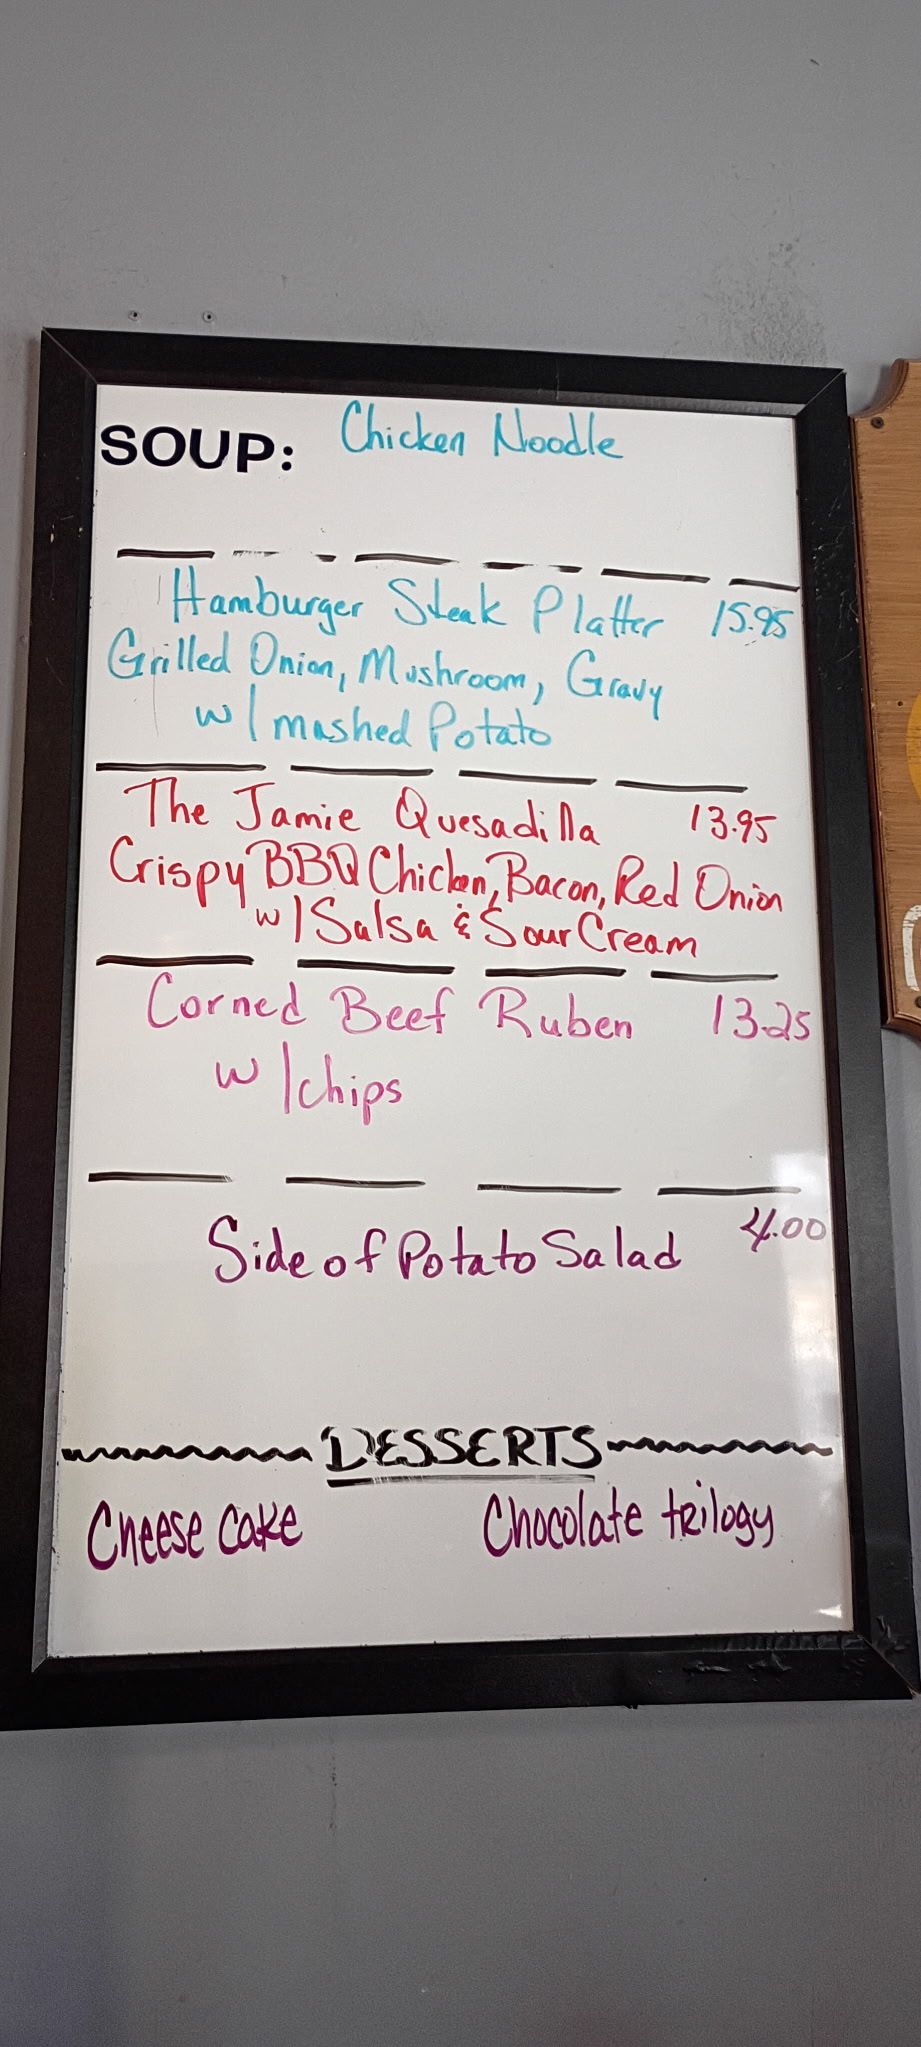 SOUP: Chicken Noodle
Hamburger Steak Platter 15.95
Grilled Onion, Mushroom, Gravy
w/mashed Potato
The Jamie Quesadilla 13.95
Crispy BBQ Chicken, Bacon, Red Onion
w/Salsa & Sour Cream
Corned Beef Ruben 13.25
w/chips
Side of Potato Salad 4.00
DESSERTS
Cheese cake Chocolate trilogy